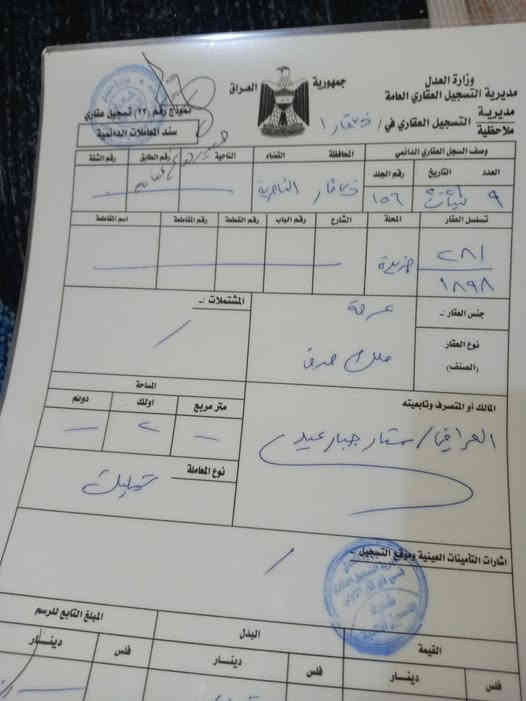 وزارة العدل
مديرية التسجيل العقاري العامة
مديرية
التسجيل العقاري في / ذي قار ١
ملاحظية
جمهورية العراق
نموذج رقم (٢٢) تسجيل عقاري
سند المعاملات الدائمية
وصف السجل العقاري الدائمي المحافظة القضاء الناحية رقم الطابق رقم الشقة
العدد التاريخ رقم الجلد
٩ ١٥٦ ذي قار الناصرية
تسلسل العقار المحلة الشارع رقم الباب رقم القطعة رقم المقاطعة اسم المقاطعة
٢٨١
١٨٩٨
جنس العقار :ـ عرصة
المشتملات :ـ
نوع العقار
(الصنف)
ملك صرف
المساحة
متر مربع اولك دونم
ـ ٢ ـ
المالك أو المتصرف وتابعيته
العراقي / ستار جبار عبيد
نوع المعاملة
تمليك
اشارات التأمينات العينية وموقع التسجيل
القيمة البدل المبلغ التابع للرسم
فلس دينـــار فلس دينـــار فلس دينـــار